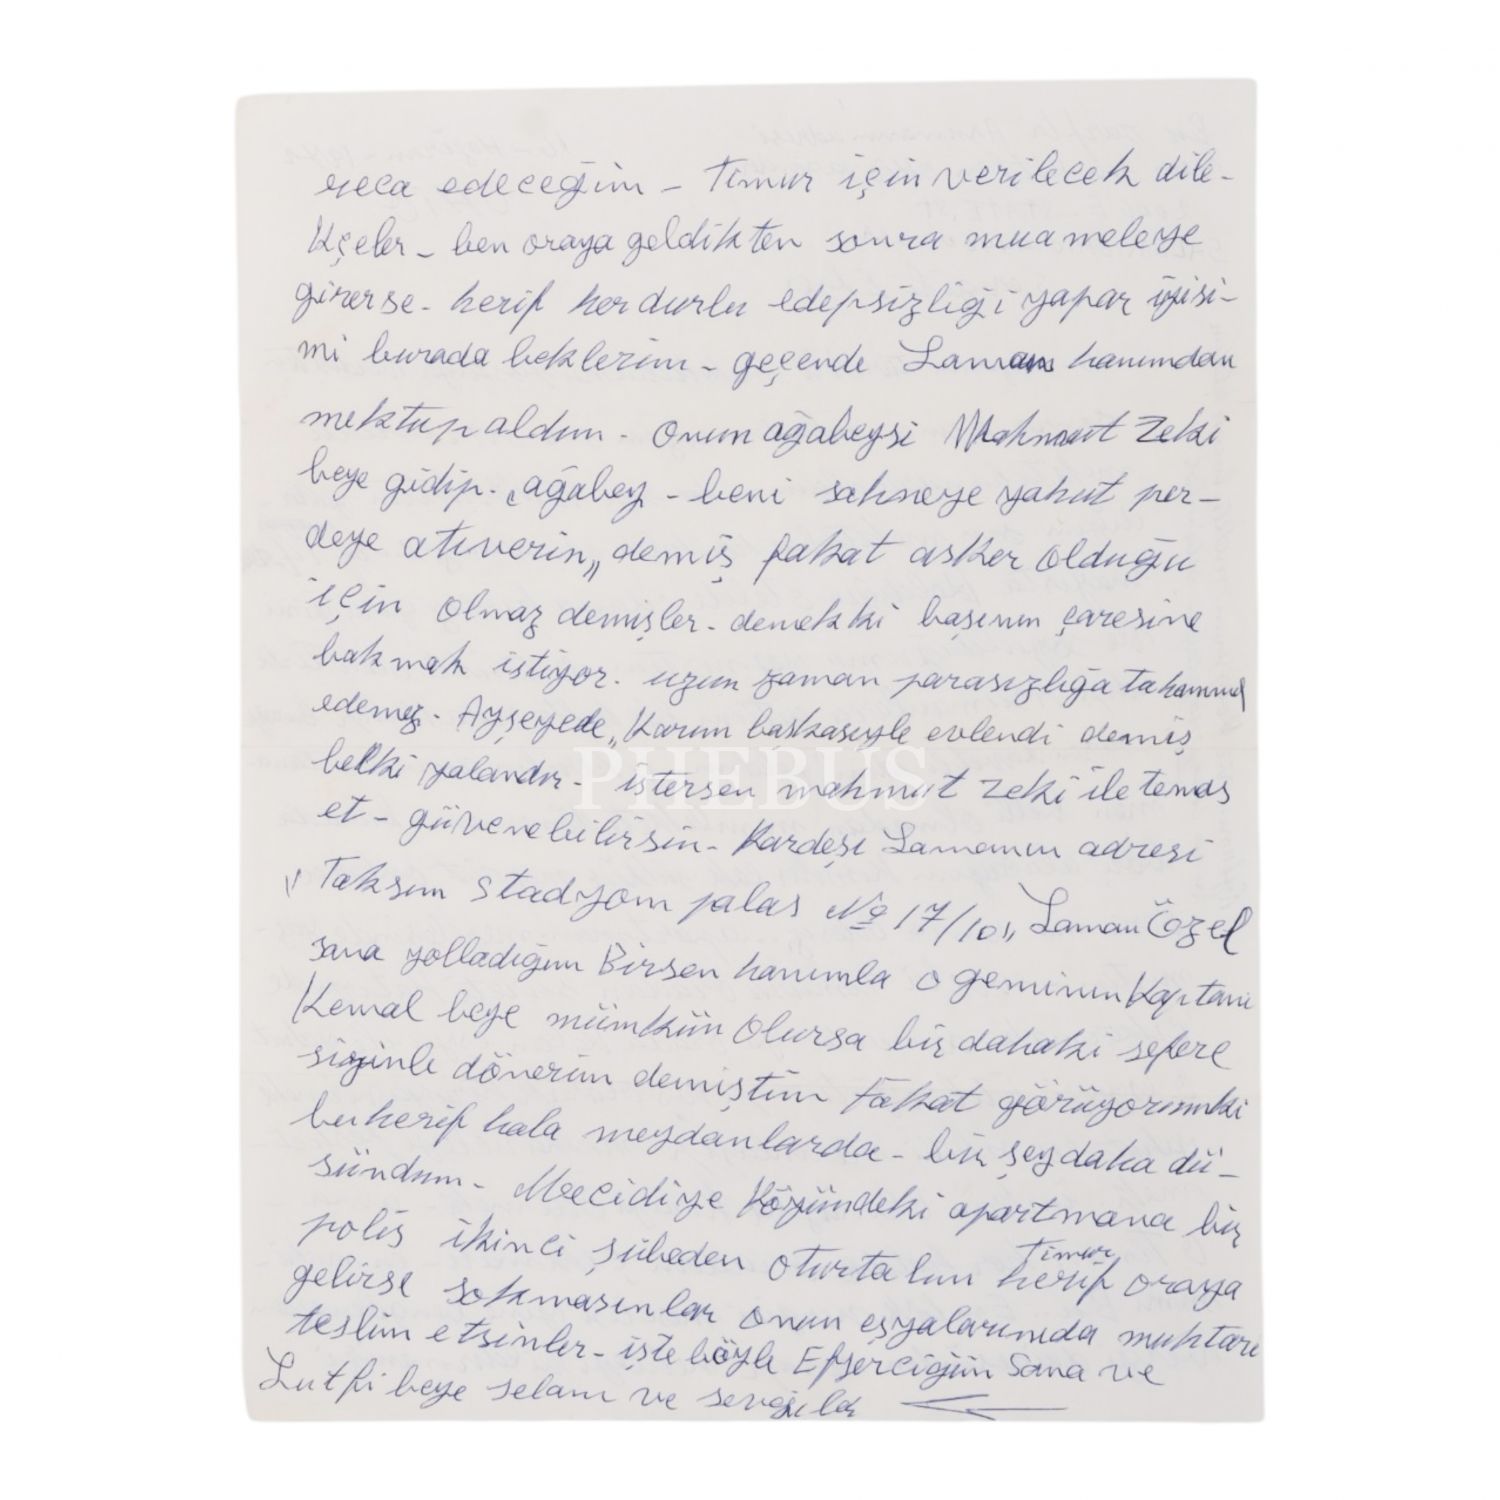 reca edeceğim - Timur için verilecek dile-
kçeler - ben oraya geldikten sonra muameleye
girerse - herif her durlu edepsizliği yapar iyisi-
mi burada beklerim - geçende Laman hanımdan
mektup aldım - onun ağabeysi Mahmut Zeki
beye gidip - „ağabey - beni sahneye yahut per-
deye atıverin„ demiş fakat asker olduğu
için olmaz demişler - demekki başının çaresine
bakmak istiyor - uzun zaman parasızlığa tahammul
edemez - Ayşeyede „Karım başkasıyle evlendi demiş
belki yalandır - istersen mahmut Zeki ile temas
PHEBUS
et - güvenebilirsin - Kardeşi Lamanın adresi
„Taksım stadyom palas № 17/10„ Laman Özel
sana yolladığım Birsen hanımla o geminin Kaptanı
Kemal beye mümkün olursa bir dahaki sefere
sizinle dönerim demiştim Fakat görüyorumki
bu herif hala meydanlarda - bir şey daha dü-
şündum - Mecidiye Köyündeki apartmana bir
polis ikinci şübeden oturtalım herif oraya
Timur
gelirse sokmasınlar onun eşyalarınıda muhtara
teslim etsinler - işte böyle Efserciğim Sana ve
Lutfi beye selam ve sevgiler